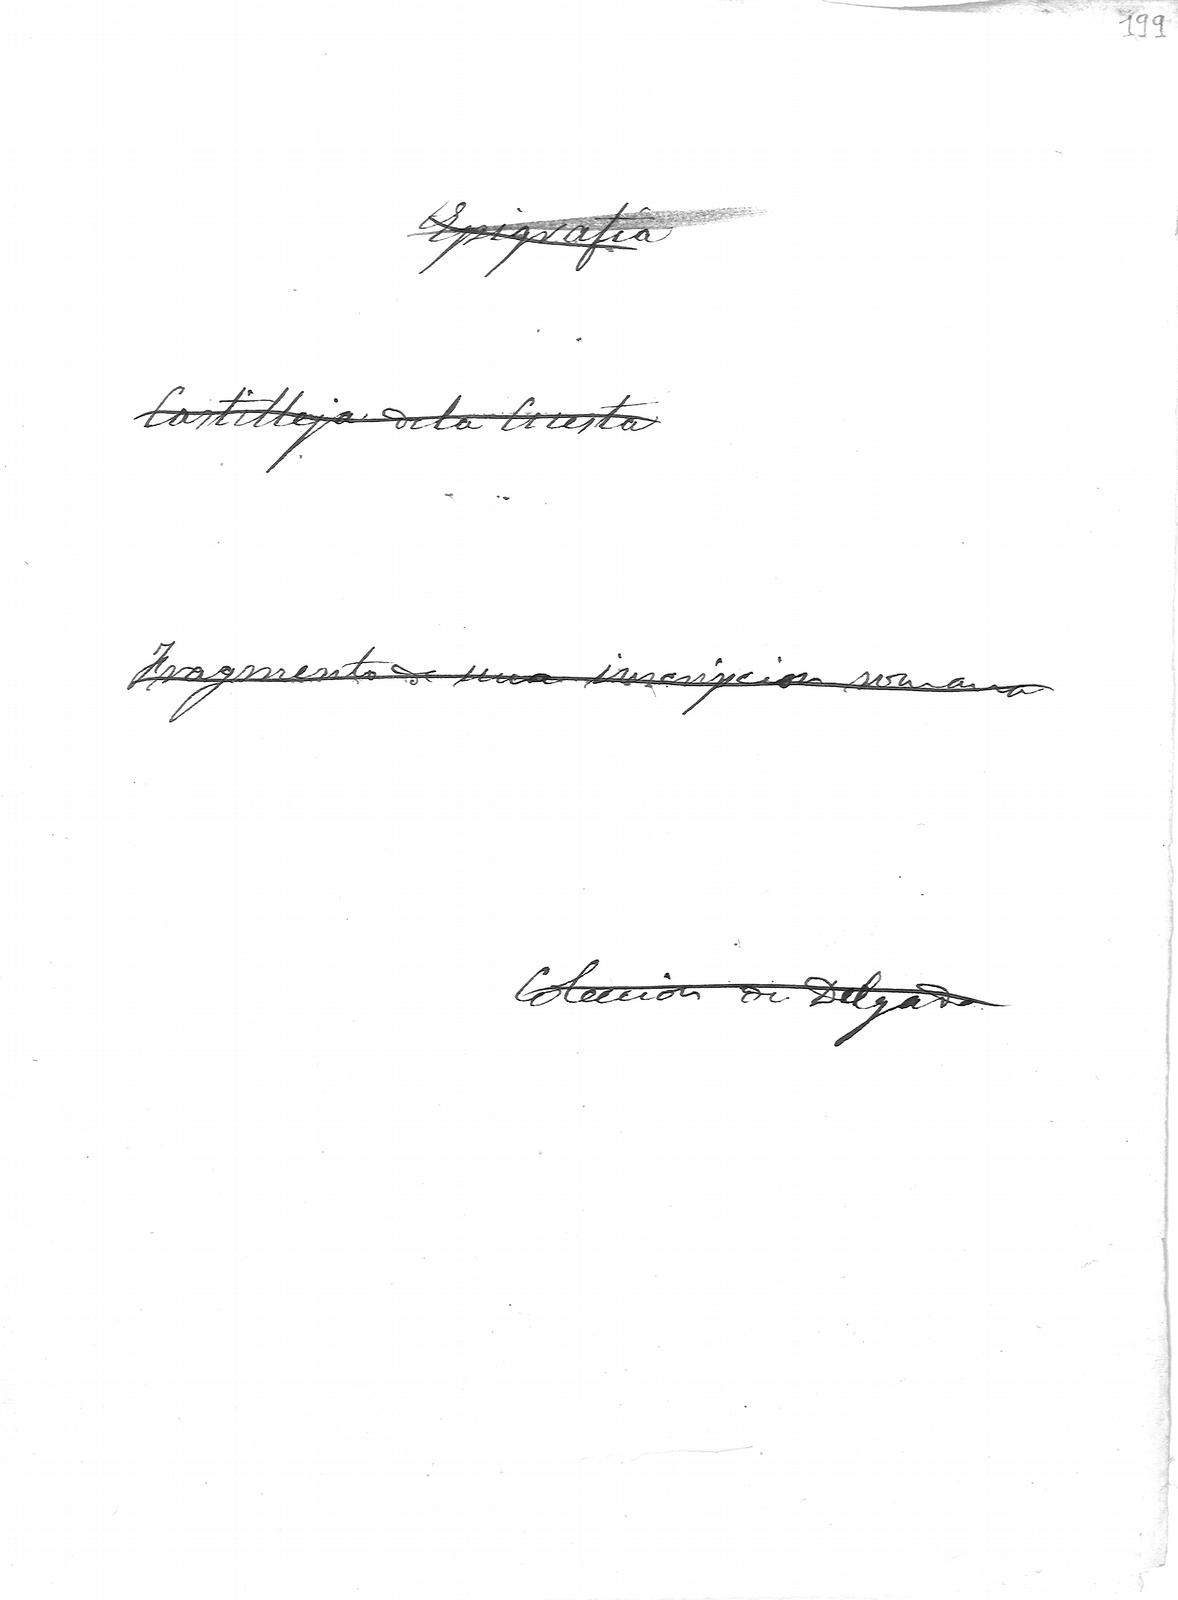 199
Epigrafia
Castilleja de la Cuesta
Fragmento de una inscripcion romana
Coleccion de Delgado